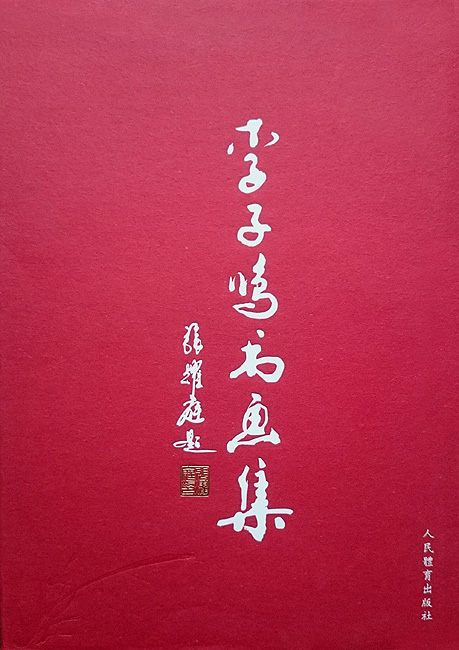 李子鸣书画集
张耀庭题
人民體育出版社